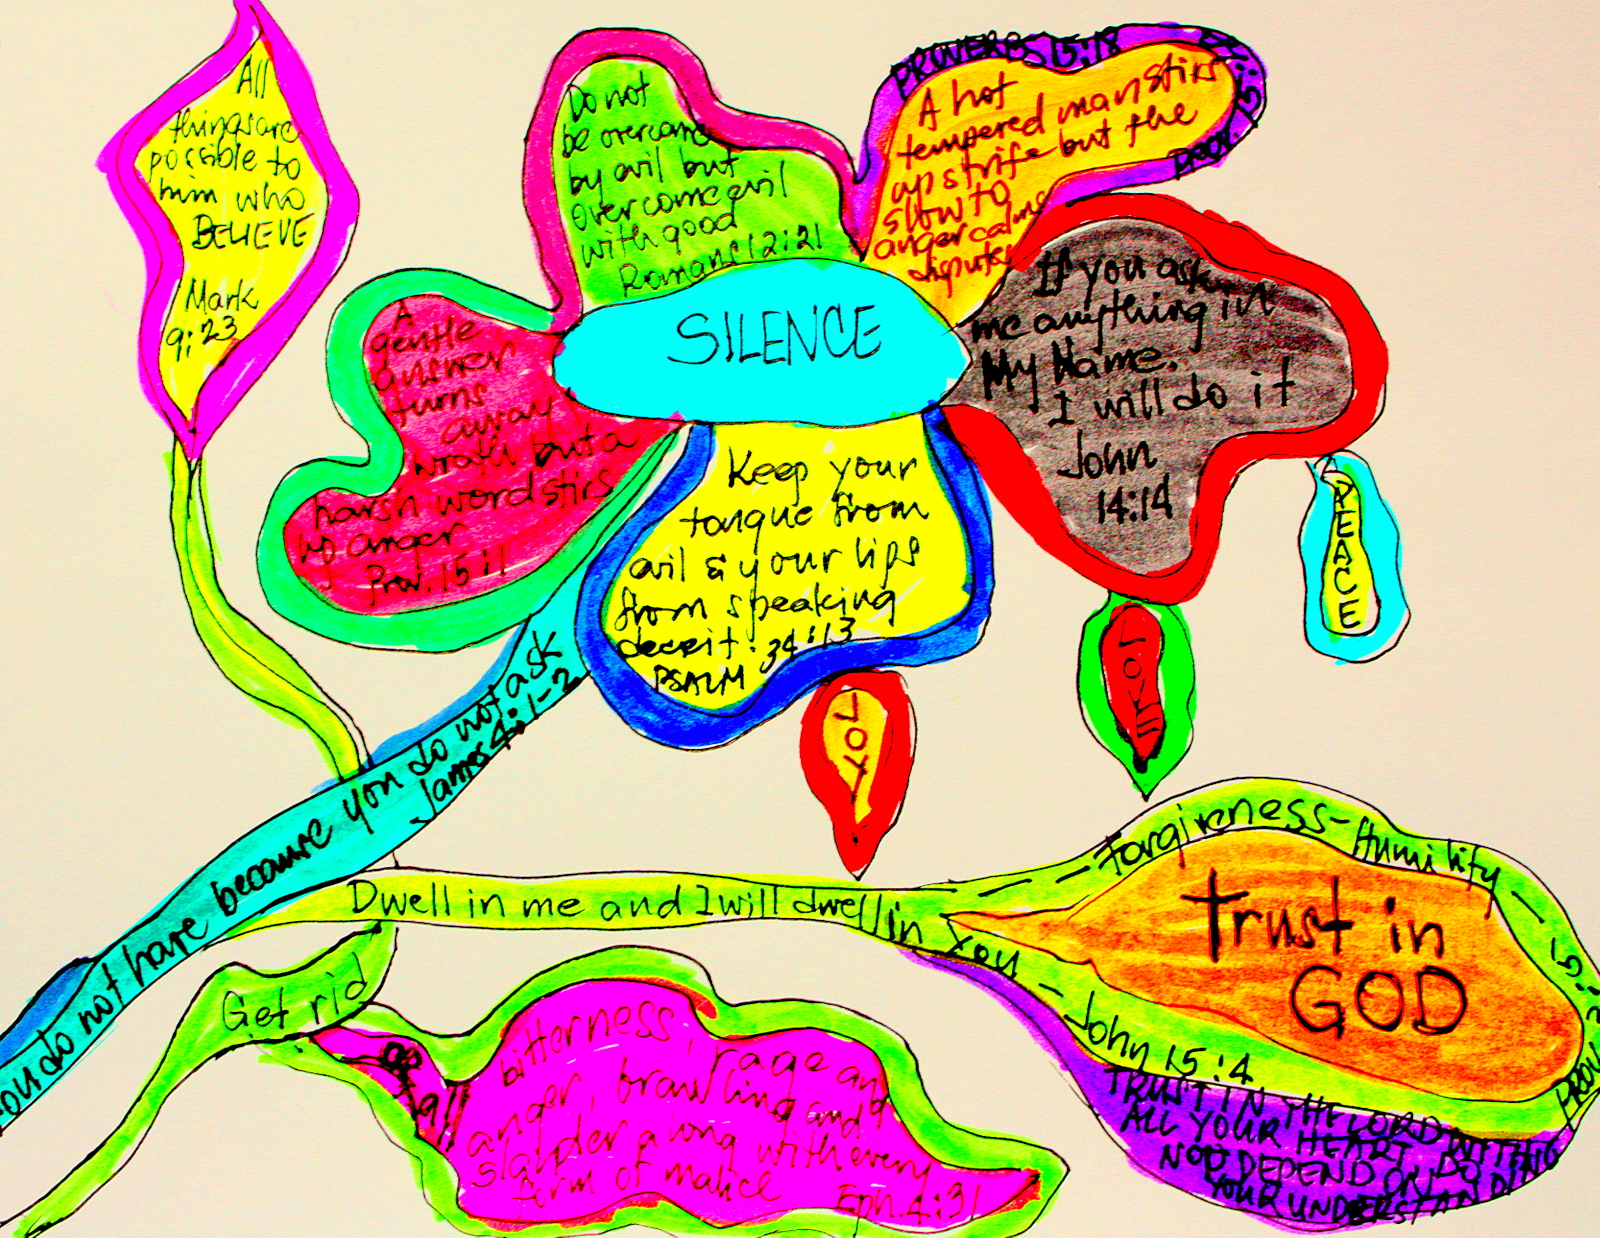 All
things are
possible to
him who
BELIEVE
Mark
9:23
Do not
be overcome
by evil but
overcome evil
with good
Romans 12:21
PROVERBS 15:18
A hot
tempered man stirs
up strife but the
slow to
anger calms
dispute
Prov. 15:
SILENCE
A
gentle
answer
turns
away
wrath but a
harsh word stirs
up anger
Prov. 15:1
If you ask
me anything in
My Name.
I will do it
John
14:14
Keep your
tongue from
evil & your lips
from speaking
deceit. 34:13
PSALM
PEACE
LOVE
JOY
you do not have because you do not ask
James 4:1-2
Dwell in me and I will dwell in you - John 15:4
Forgiveness - Humility -
Trust in
GOD
TRUST IN THE LORD WITH
ALL YOUR HEART DO
NOT DEPEND ON
YOUR UNDERSTANDING
Prov.
Get rid
of
all
bitterness, rage and
anger, brawling and
slander along with every
form of malice Eph. 4:31